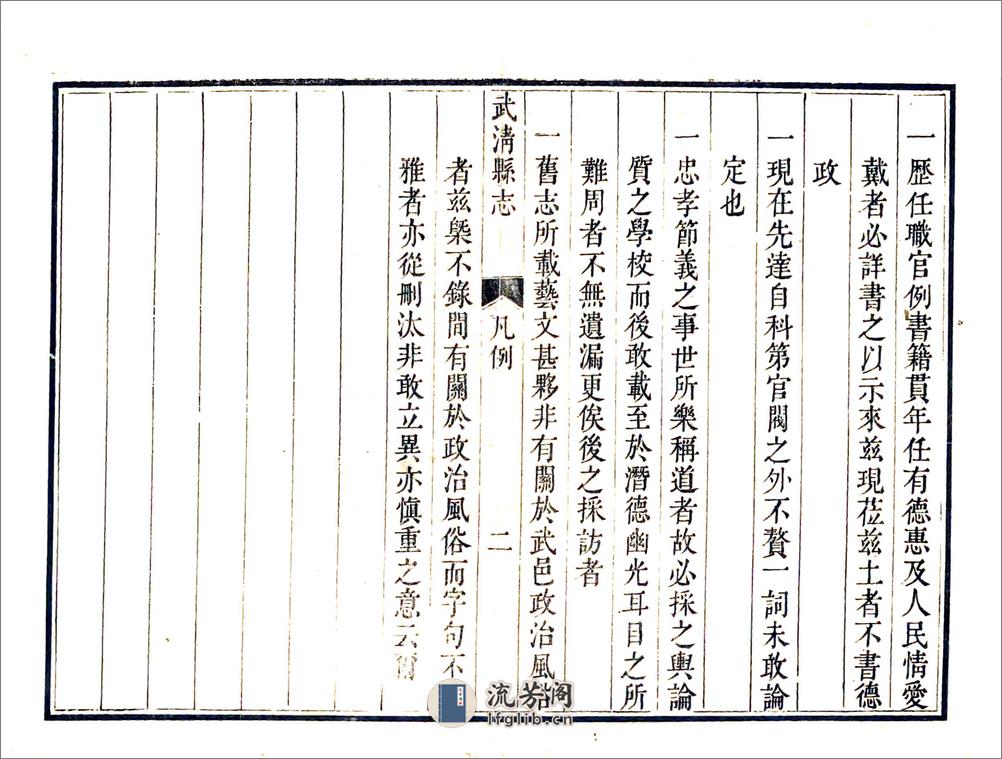 一歷任職官例書籍貫年任有德惠及人民情愛
戴者必詳書之以示來兹現莅兹土者不書德
政
一現在先達自科第官閥之外不贅一詞未敢論
定也
一忠孝節義之事世所樂稱道者故必採之輿論
質之學校而後敢載至於潛德幽光耳目之所
難周者不無遺漏更俟後之採訪者
一舊志所載藝文甚夥非有關於武邑政治風
武清縣志 凡例 二
者兹槩不錄間有關於政治風俗而字句不
雅者亦從刪汰非敢立異亦慎重之意云爾
流芳阁
lfglib.cn